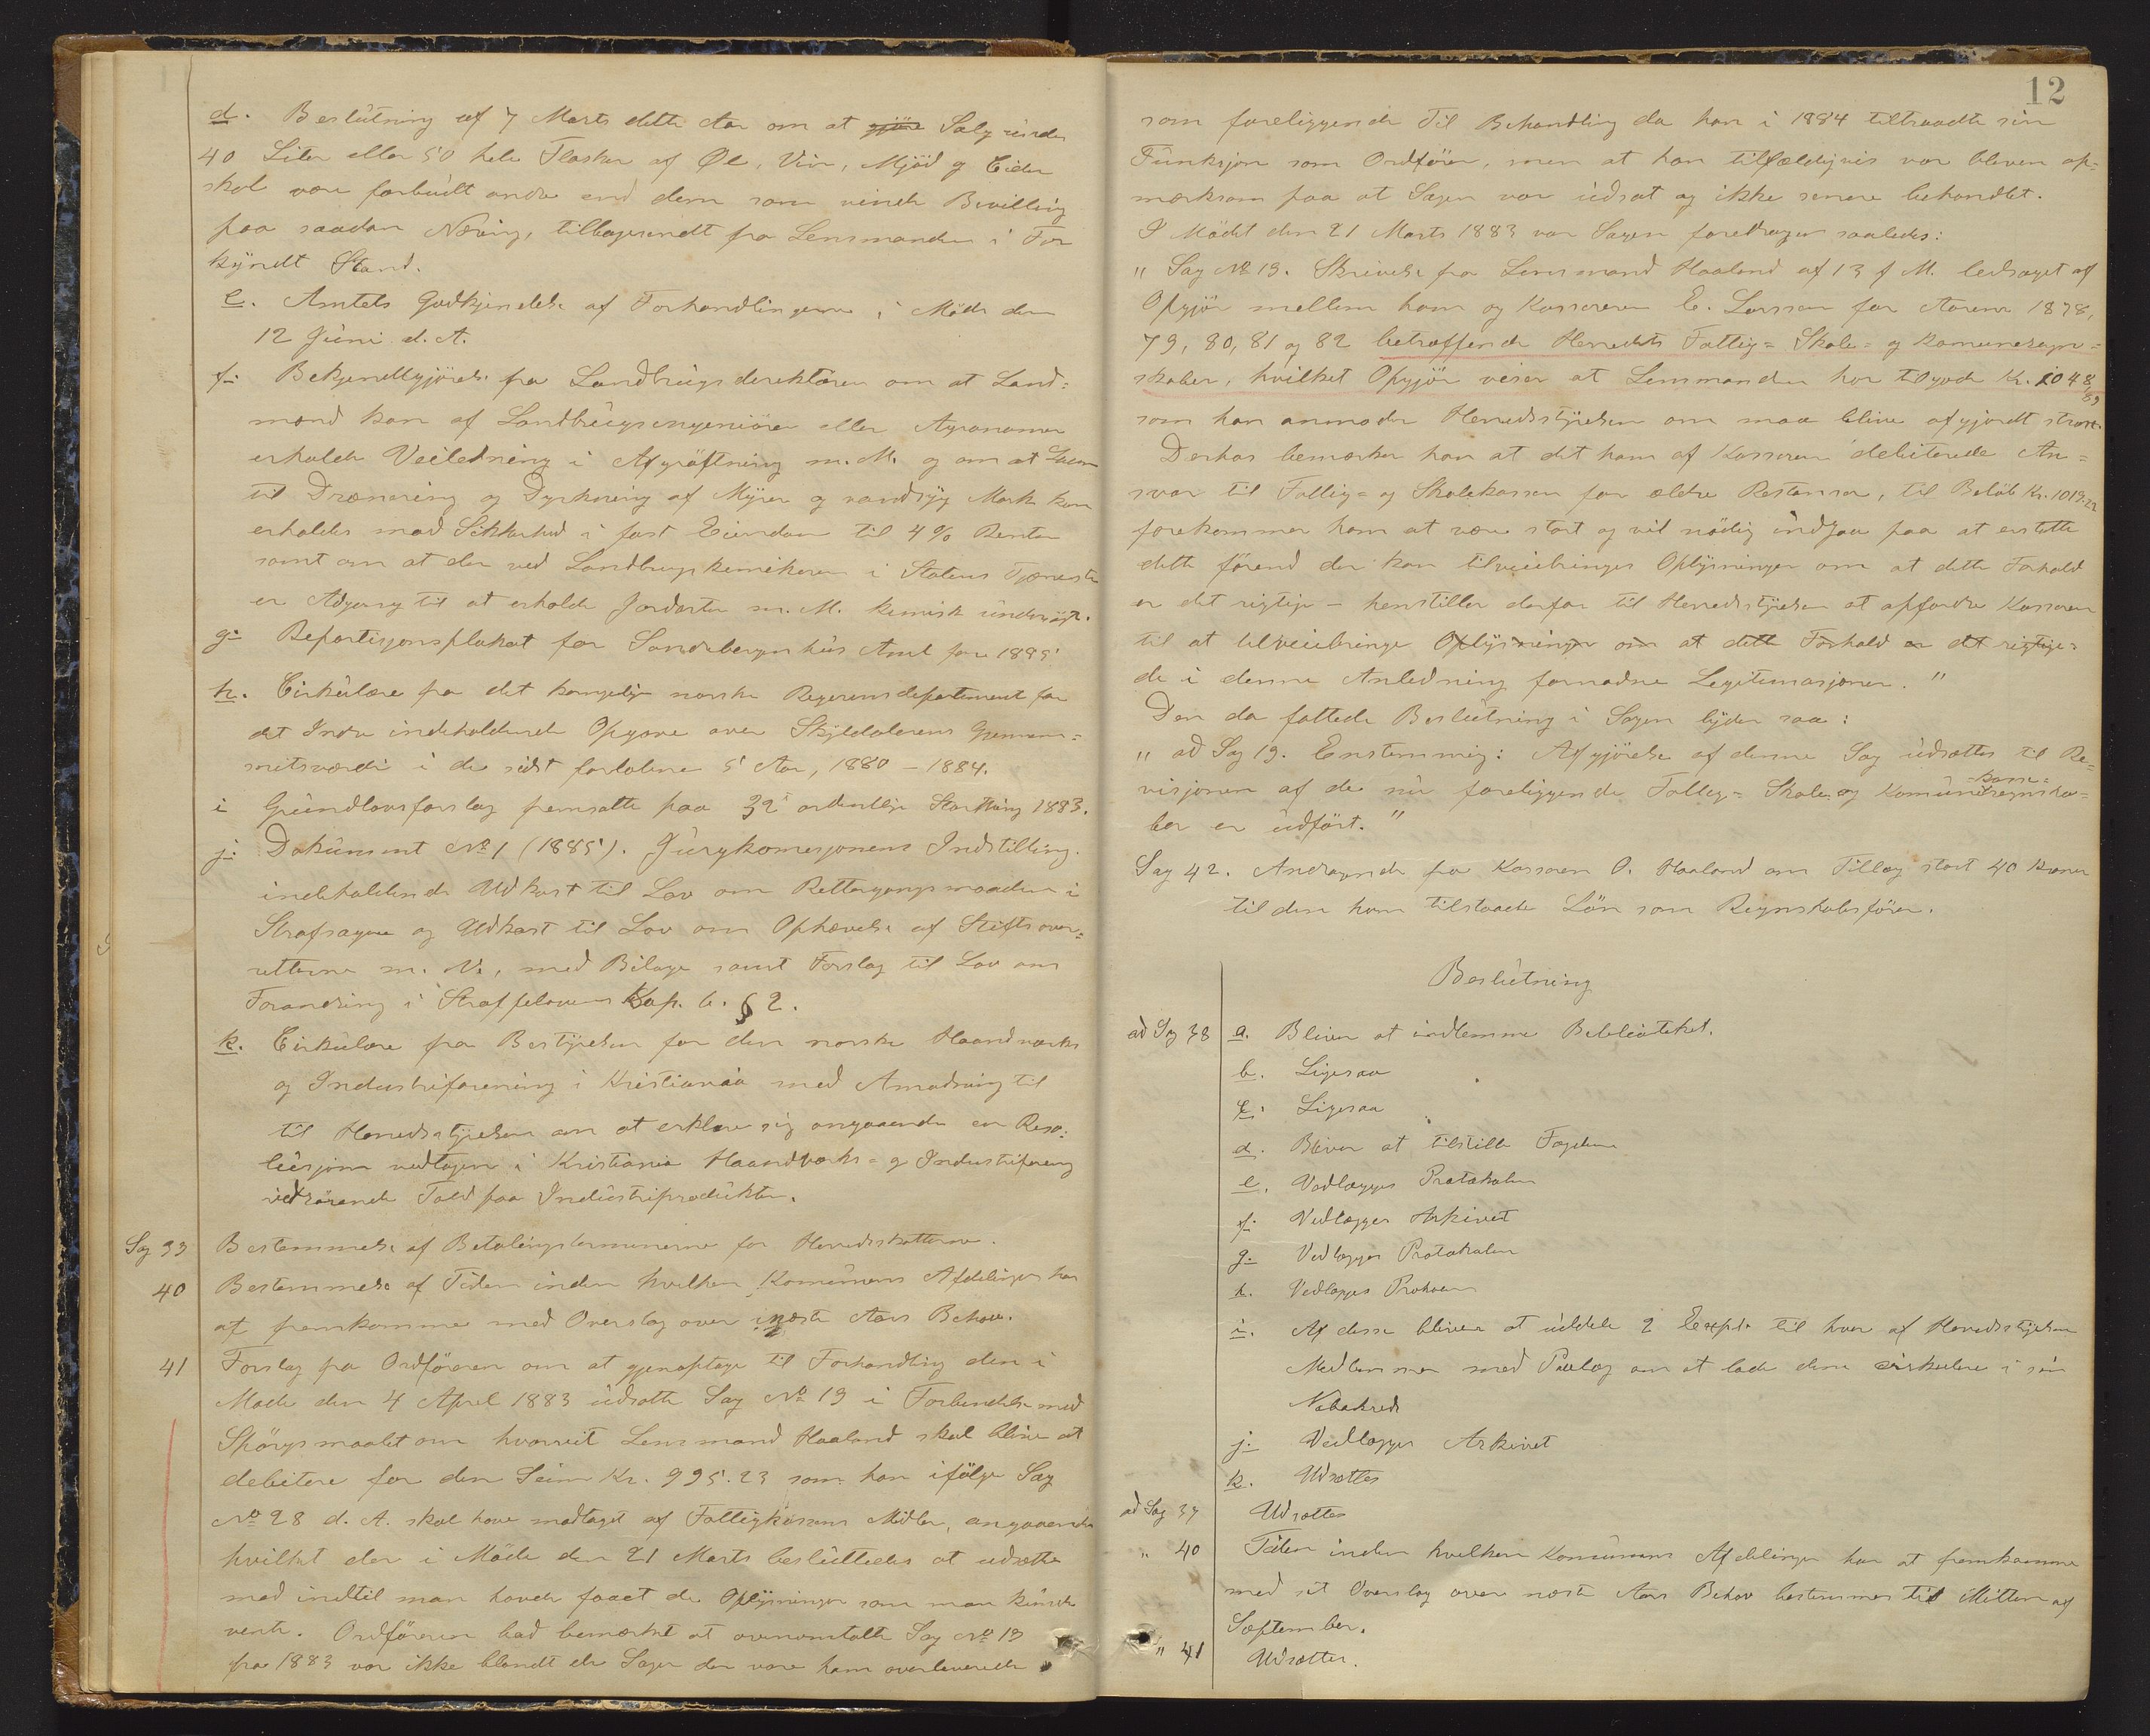 d. Beslutning af 7 Marts dette Aar om at gjöre Salg under
40 Liter eller 50 hele Flasker af Øl, Vin, Mjöd og Cider
skal være forbudt andre end dem som vinde Bevilling
paa saadan Næring, tilbagesendt fra Lensmanden i For
kyndt Stand.
e. Amtets Godkjendelse af Forhandlingerne i Möde den
12 Juni d. A.
f. Bekjendtgjörelse fra Landbrugsderektören om at Land=
mænd kan af Landbrugsengeniörer eller Agronomer
erholde Veiledning i Afgröftning m. M. og om at Laan
til Drænering og Dyrkning af Myrer og vandsyg Mark kan
erholdes mod Sikkerhed i fast Eiendom til 4% Renter
samt om at der ved Landbrugskemikeren i Statens Tjæneste
er Adgang til at erholde Jordarter m. M. kemisk undersögt.
g. Repartisjonsplakat for Söndrebergenhus Amt for 1885
h. Cirkulære fra det kongelige norske Regjerens departement for
det Indre indeholdende Opgave over Skylddalerens Gjennem=
snitsværdi i de sidst forløbne 5 Aar, 1880 – 1884.
i Grundlovsforslag fremsatte paa 32 ordentlige Storthing 1883.
j. Dokument No 1 (1885). Jurykomisjonens Indstilling.
indeholdende Udkast til Lov om Rettergangsmaaden i
Strafsager og Udkast til Lov om Ophævelse af Stiftsover=
retterne m. V., med Bilage samt Forslag til Lov om
Forandring i Straffeloven Kap. 6. § 2.
k. Cirkulære fra Bestyrelsen for den norske Haandværks
og Industriforening i Kristiania med Anmodning til
til Herredsstyrelsen om at erklære sig angaaende en Reso=
lusjon vedtagen i Kristiania Haandværks= og Industriforening
vedrörende Told paa Industriprodukter.
Sag 39 Bestemmelse af Betalingsterminerne for Herredsskatterne.
40 Bestemmelse af Tiden inden hvilken Komunens Afdelinger har
at fremkomme med Overslag over næste Aars Behov.
41 Forslag fra Ordföreren om at gjenoptage til Forhandling den i
Möde den 4 April 1883 udsatte Sag No 19 i Forbindelse med
Spörgsmaalet om hvorvit Lensmand Haaland skal blive at
debitere for den Sum Kr. 995.23 som han ifölge Sag
No 28 d. A. skal have modtaget af Fattigkassens Midler, angaaende
hvilket der i Möde den 21 Marts besluttedes at udsætte
med indtil man havde faaet de Oplysninger som man kunde
vente. Ordföreren bad bemærket at ovenomtalte Sag No 19
fra 1883 var ikke blandt de Sager der vare ham overleverede
12
som foreliggende til Behandling da han i 1884 tiltraadte sin
Funksjon som Ordförer, men at han tilfældigvis var bleven op=
mærksom paa at Sagen var udsat og ikke senere behandlet.
I Mödet den 21 Marts 1883 var Sagen foredragen saaledes:
"Sag No 19. Skrivelse fra Lensmand Haaland af 13 f M. ledsaget af
Opgjör mellem ham og Kassereren E. Larssen for Aarene 1878,
79, 80, 81 og 82 betræffende Herredets Fattig= Skole= og Komuneregn=
skaber, hvilket Opgjör viser at Lensmanden har tilgode Kr. 1048,89
som han anmoder Herredsstyrelsen om maa blive afgjordt strax.
Derhos bemærker han at det ham af Kasseren debiterede An=
svar til Fattig= og Skolekassen for ældre Restanser, til Belöb Kr. 1019.22
forekommer ham at være stort og vil nödig indgaa paa at erstatte
dette förend der kan tilveiebringes Oplysninger om at dette Forhold
er det rigtige – henstiller derfor til Herredsstyrelsen at opfordre Kasseren
til at tilveiebringe Oplysninger om at dette Forhold er det rigtige=
de i denne Anledning fornødne Legitimasjoner."
Den da fattede Beslutning i Sagen lyder saa:
"ad Sag 19. Enstemmig: Afgjörelse af denne Sag udsættes til Re=
visjonen af de nu foreliggende Fattig= Skole og Komunekasse=regnska=
ber er udfört."
Sag 42. Andragende fra Kasseren O. Haaland om Tillæg stort 40 Kroner
til den ham tilstaaede Lön som Regnskabsförer.
Beslutning
ad Sag 38 a. Bliver at indlemme Bibliotheket.
b. Ligesaa
c. Ligesaa
d. Bliver at tilstille Fogden
e. Vedlægges Protokolen
f. Vedlægges Arkivet
g. Vedlægges Protokolen
h. Vedlægges Protokolen
i. Af disse bliver at uddele 2 Exept. til hver af Herredsstyrelsens
Medlemmer med Paalæg om at lade dem cirkulere i sin
Nabokreds
j. Vedlægges Arkivet
k. Udsættes
ad Sag 39 Udsættes
" 40 Tiden inden hvilken Komunens Afdelinger har at fremkomme
med sit Overslag over næste Aars Behov bestemmes til Mitten af
September.
" 41 Udsættes.